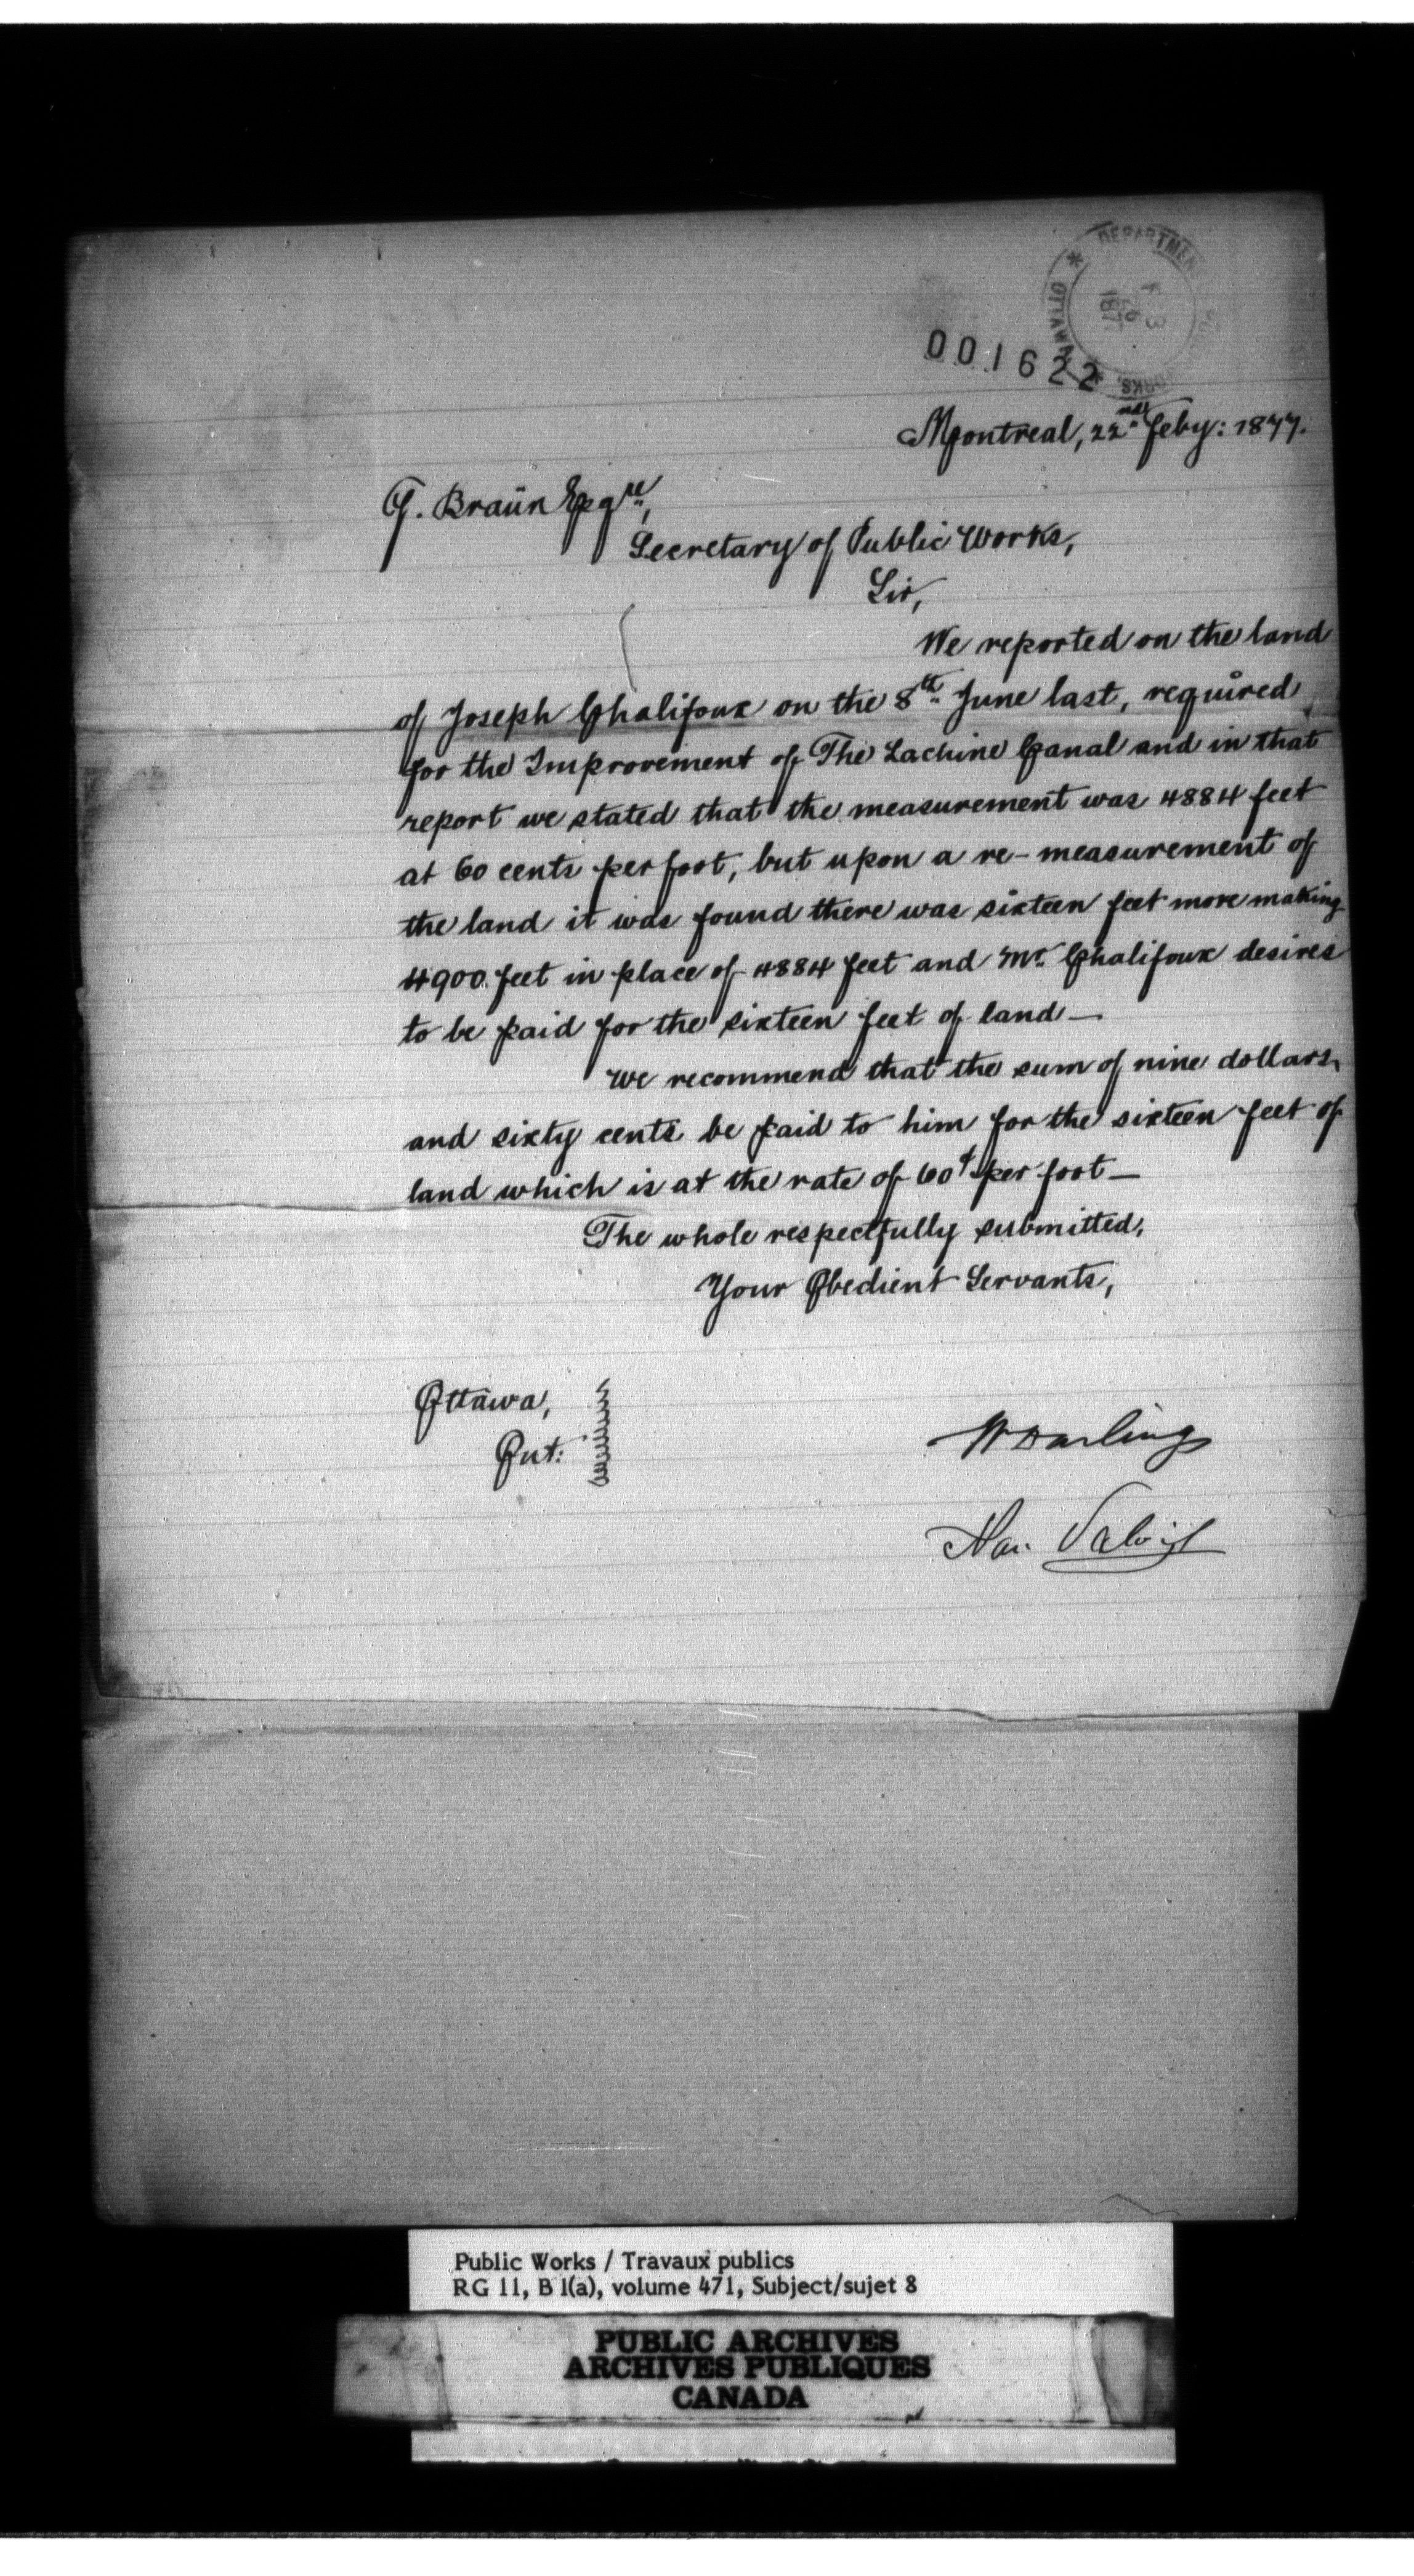 DEPARTMENT PUBLIC WORKS, OTTAWA
FEB 26 187
001622
Montreal, 22nd Feby: 1877.
G. Braün Esqre,
Secretary of Public Works,
Sir,
We reported on the land
of Joseph Chalifoux on the 8th June last, required
for the Improvement of The Lachine Canal and in that
report we stated that the measurement was 4884 feet
at 60 cents per foot, but upon a re-measurement of
the land it was found there was sixteen feet more making
4900 feet in place of 4884 feet and Mr Chalifoux desires
to be paid for the sixteen feet of land—
We recommend that the sum of nine dollars
and sixty cents be paid to him for the sixteen feet of
land which is at the rate of 60¢ per foot—
The whole respectfully submitted,
Your Obedient Servants,
Ottawa,
Ont:
W Darling
Nar. Valois
Public Works / Travaux publics
RG 11, B 1(a), volume 471, Subject/sujet 8
PUBLIC ARCHIVES
ARCHIVES PUBLIQUES
CANADA